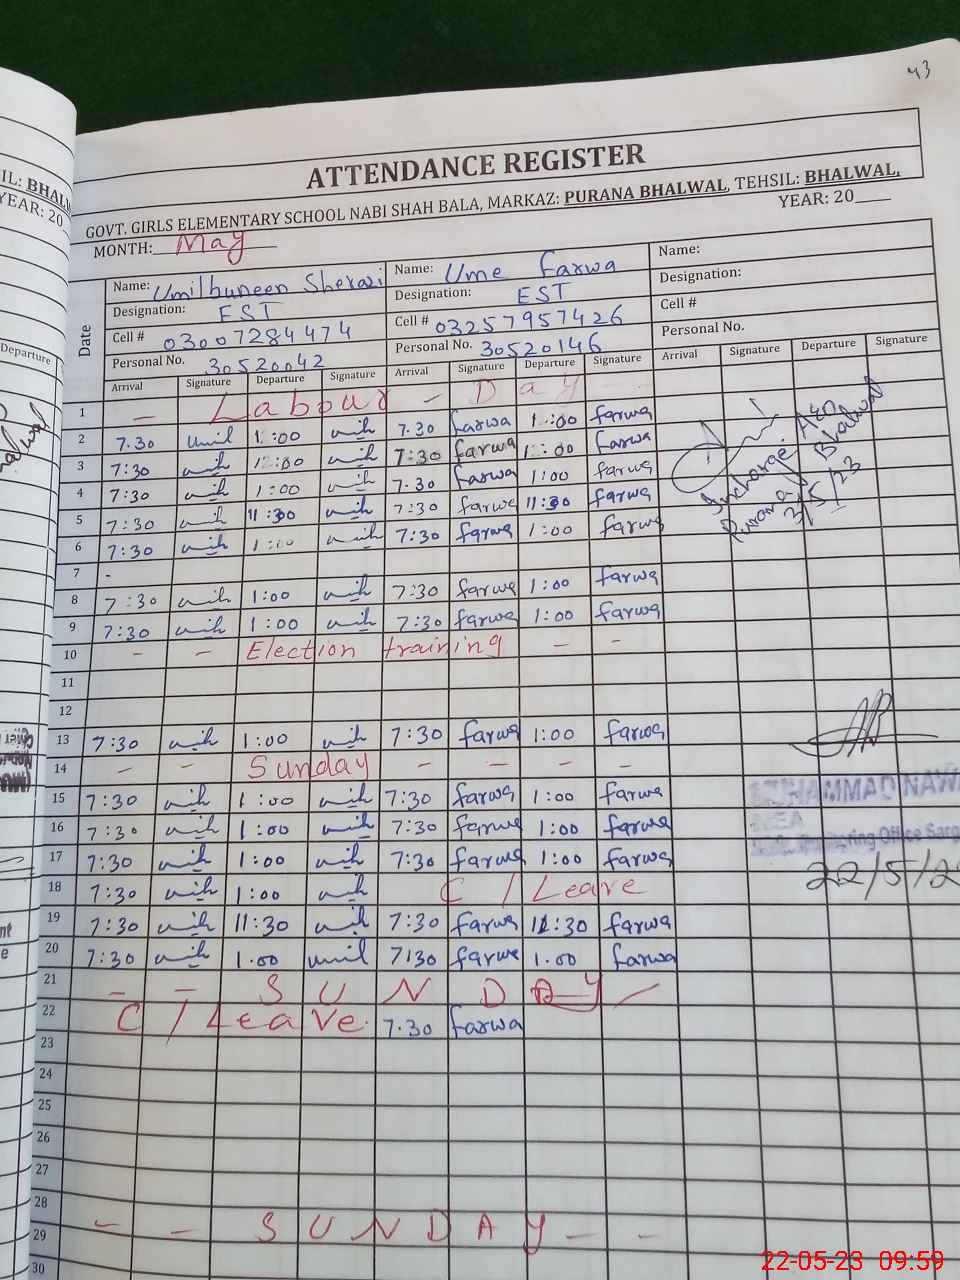 43
ATTENDANCE REGISTER
GOVT. GIRLS ELEMENTARY SCHOOL NABI SHAH BALA, MARKAZ: PURANA BHALWAL, TEHSIL: BHALWAL,
MONTH: May YEAR: 20
Name: Umilbuneen Sherazi Name: Ume Farwa Name:
Designation: EST Designation: EST Designation:
Cell # 03007284474 Cell # 03257957426 Cell #
Personal No. 30520042 Personal No. 30520146 Personal No.
Date Arrival Signature Departure Signature Arrival Signature Departure Signature Arrival Signature Departure Signature
1 - Labour - Day -
2 7.30 Umil 1:00 7.30 Farwa 1:00 farwa
3 7:30 7:30 farwa farwa
4 7:30 1:00 7.30 Farwa 1:00 farwa
5 7:30 11:30 7:30 farwa 11:30 farwa
6 7:30 1:00 7:30 farwa 1:00 farwa
7 -
8 7:30 1:00 7:30 farwa 1:00 farwa
9 7:30 1:00 7:30 farwa 1:00 farwa
10 - - Election training - -
11
12
13 7:30 1:00 7:30 farwa 1:00 farwa
14 - - Sunday - - - -
15 7:30 1:00 7:30 farwa 1:00 farwa
16 7:30 1:00 7:30 farwa 1:00 farwa
17 7:30 1:00 7:30 farwa 1:00 farwa
18 7:30 1:00 C / Leave
19 7:30 11:30 7:30 farwa 11:30 farwa
20 7:30 1.00 umil 7:30 farwa 1.00 farwa
21 - - SUNDAY -
22 C / Leave 7.30 farwa
23
24
25
26
27
28
29 - - SUNDAY - -
30
Incharge AEO
Purana Bhalwal
2/5/23
MUHAMMAD NAWA
MEA
ring Office Sarg
22/5/2
IL: BHALW
YEAR: 20
Departure
22-05-23 09:59